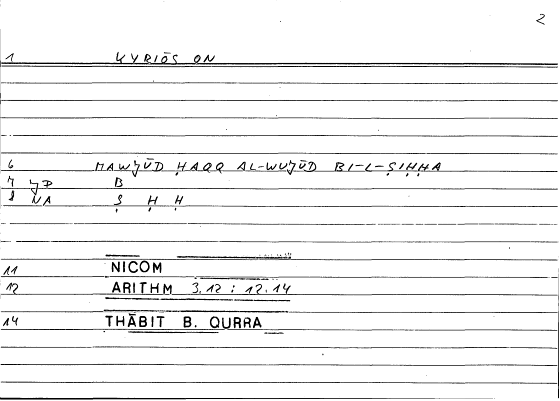 2
1 KYRIŌS ON
6 MAWJŪD ḤAQQ AL-WUJŪD BI-L-ṢIḤḤA
7 JD B
8 NA Ṣ Ḥ Ḥ
11 NICOM
12 ARITHM 3,12 : 12.14
14 THĀBIT B. QURRA